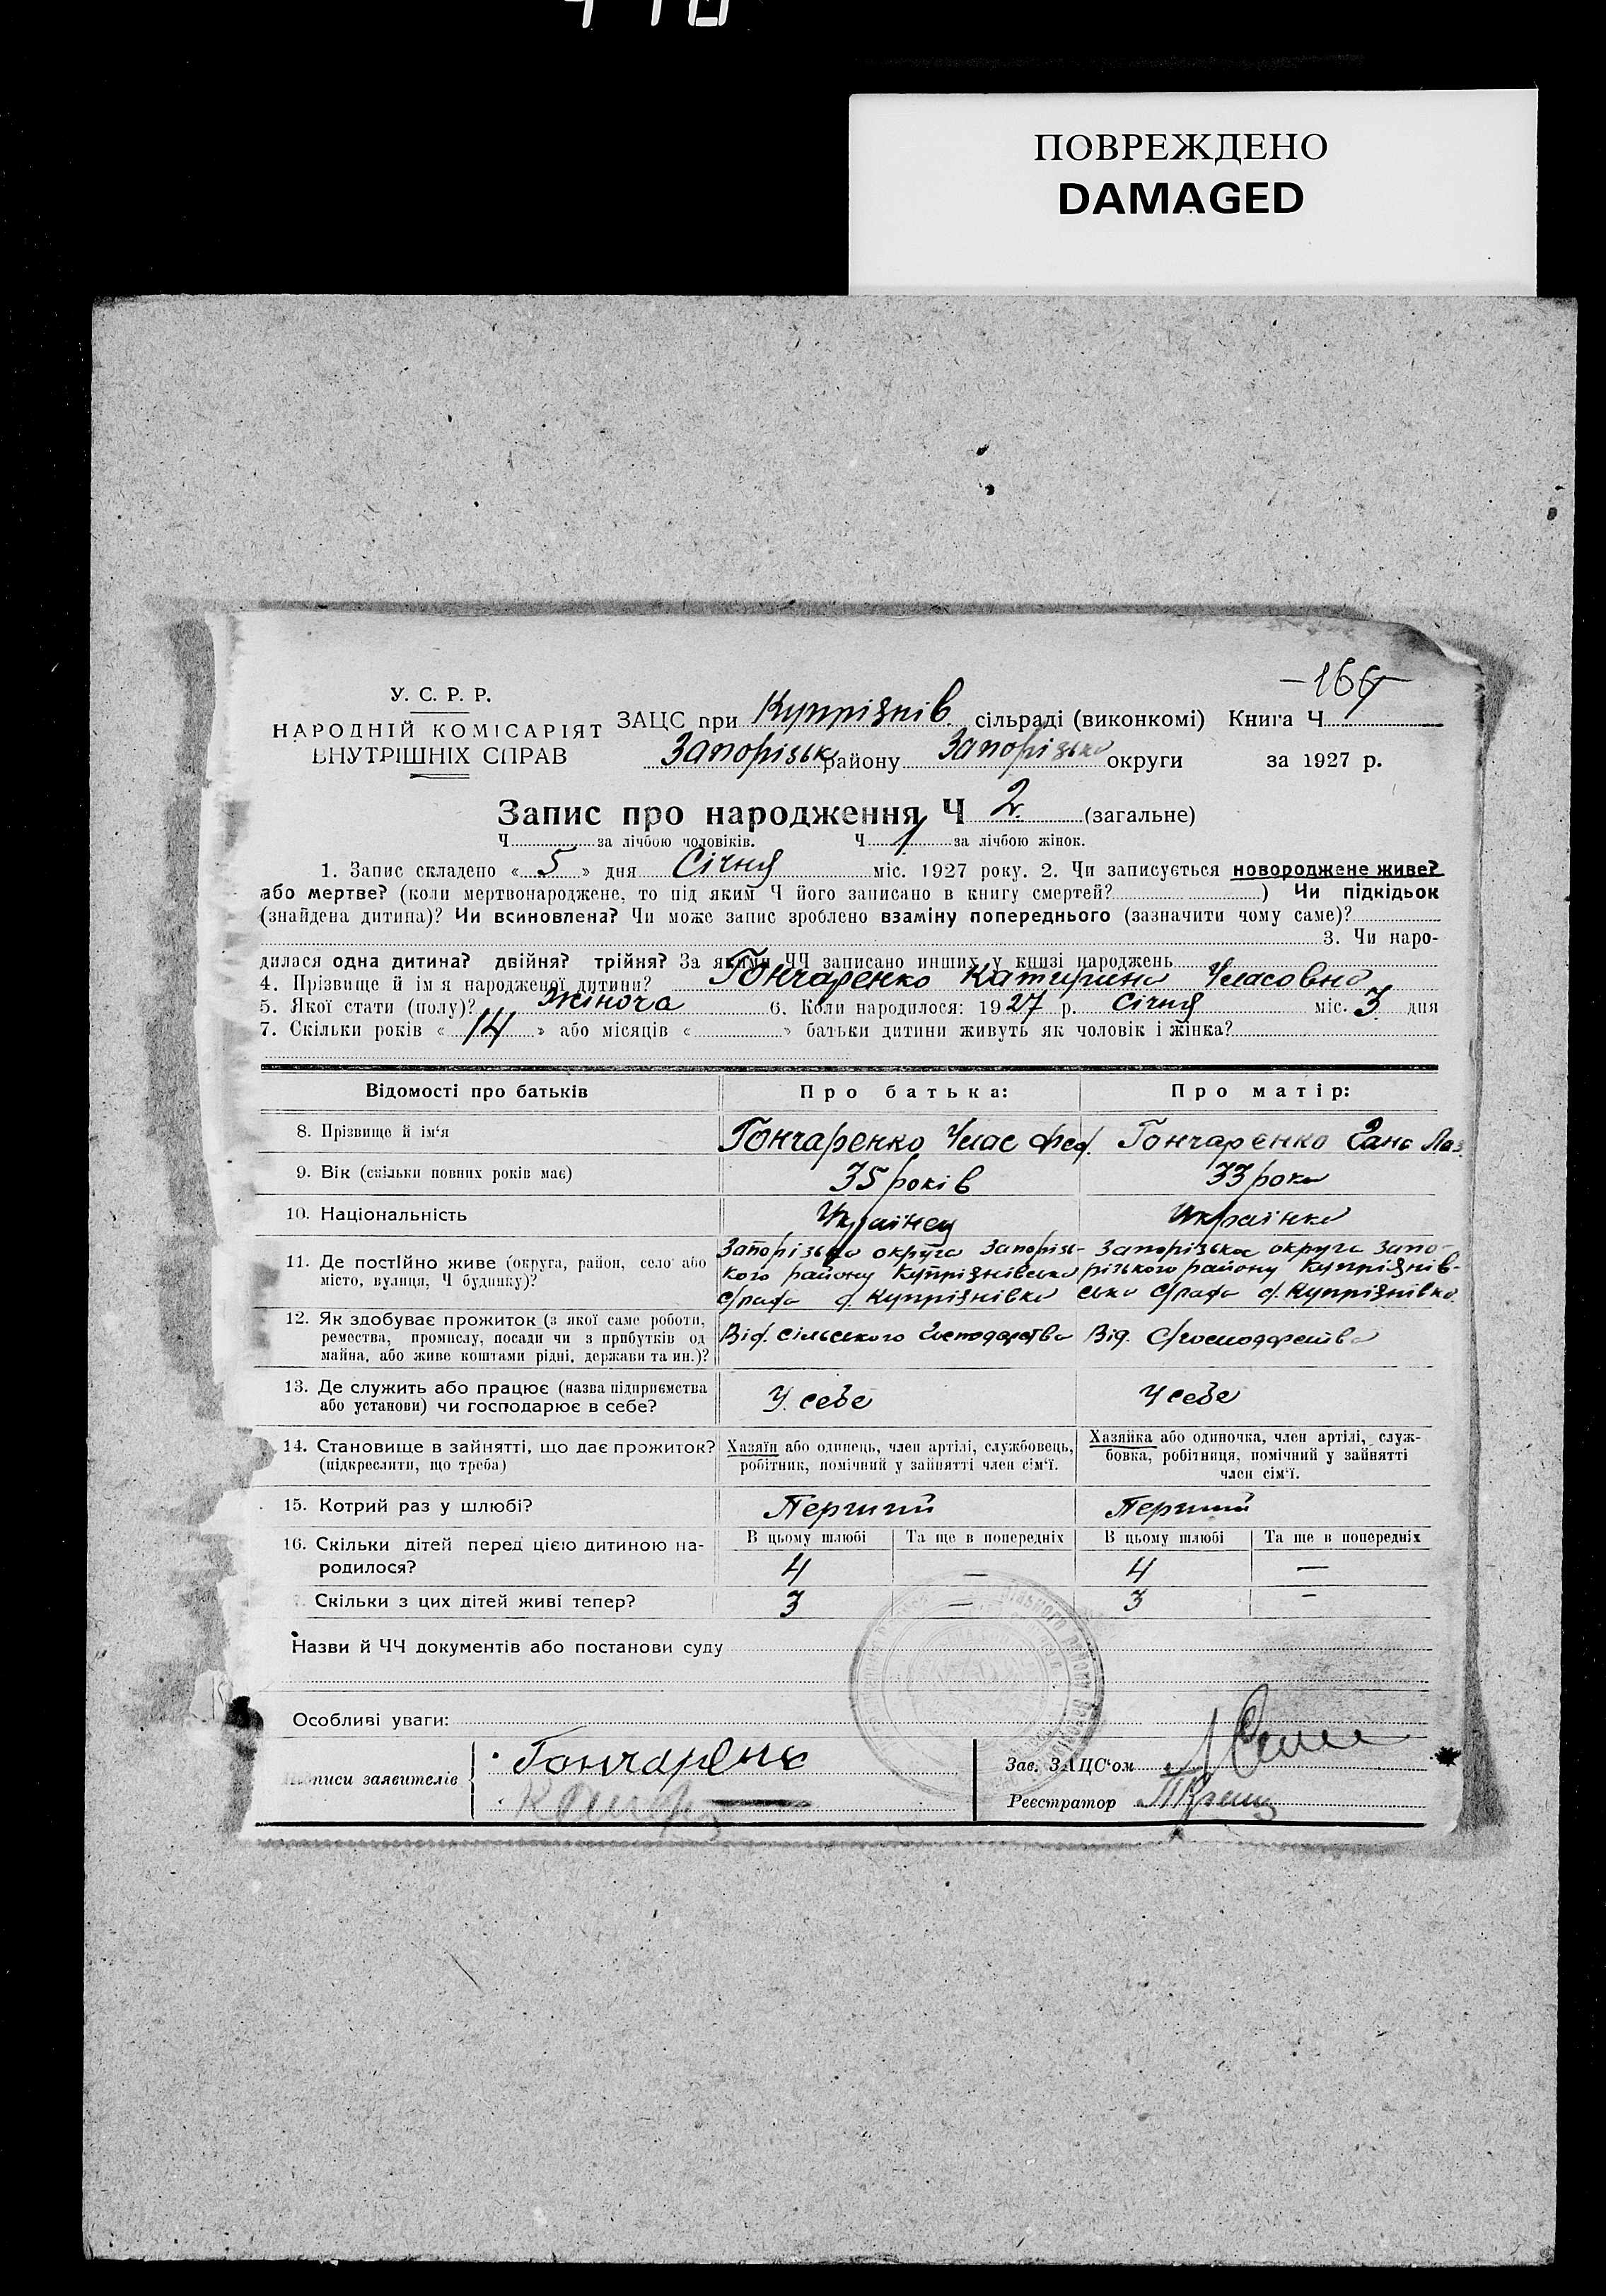 ПОВРЕЖДЕНО
DAMAGED
У. С. Р. Р.
НАРОДНІЙ КОМІСАРІЯТ
ВНУТРІШНІХ СПРАВ
ЗАЦС при Купріянів сільраді (виконкомі) Книга Ч
Запорізьк району Запорізько округи за 1927 р.
Запис про народження Ч 2 (загальне)
Ч за лічбою чоловіків. Ч 1 за лічбою жінок.
1. Запис складено « 5 » дня Січня міс. 1927 року. 2. Чи записується новороджене живе?
або мертве? (коли мертвонароджене, то під яким Ч його записано в книгу смертей? ) Чи підкідьок
(знайдена дитина)? Чи всиновлена? Чи може запис зроблено взаміну попереднього (зазначити чому саме)?
3. Чи наро-
дилася одна дитина? двійня? трійня? За якими ЧЧ записано инших у книзі народжень
4. Прізвище й ім я народженої дитини? Гончаренко Катирина Уласовна
5. Якої стати (полу)? Жіноча 6. Коли народилося: 1927 р. Січня міс. 3 дня
7. Скільки років « 14 » або місяців « » батьки дитини живуть як чоловік і жінка?
Відомості про батьків Про батька: Про матір:
8. Прізвище й ім‘я Гончаренко Улас Фед. Гончаренко Ганна Лаз.
9. Вік (скільки повних років має) 35 років 33 роки
10. Національність Українец Українка
11. Де постійно живе (округа, район, село або місто, вулиця, Ч будинку)?
Запорізька округа Запорізь- Запорізька округа Запо-
кого району Купріянівська різького району Купріянів-
с/рада с. Купріянівка ська с/рада с. Купріянівка
12. Як здобуває прожиток (з якої саме роботи,
ремества, промислу, посади чи з прибутків од
майна, або живе коштами рідні, держави та ин.)?
Від. сільського господарства Від. с/господарства
13. Де служить або працює (назва підприємства
або установи) чи господарює в себе?
У себе У себе
14. Становище в зайнятті, що дає прожиток?
(підкреслити, що треба)
Хазяїн або одинець, член артілі, службовець,
робітник, помічний у зайнятті член сім‘ї.
Хазяйка або одиночка, член артілі, служ-
бовка, робітниця, помічний у зайнятті
член сім‘ї.
15. Котрий раз у шлюбі? Перший Перший
В цьому шлюбі Та ще в попередніх В цьому шлюбі Та ще в попередніх
16. Скільки дітей перед цією дитиною на-
родилося? 4 — 4 —
Скільки з цих дітей живі тепер? 3 — 3 —
Назви й ЧЧ документів або постанови суду
Особливі уваги:
писи заявителів Гончаренк
Зав. ЗАЦС‘ом
Реєстратор